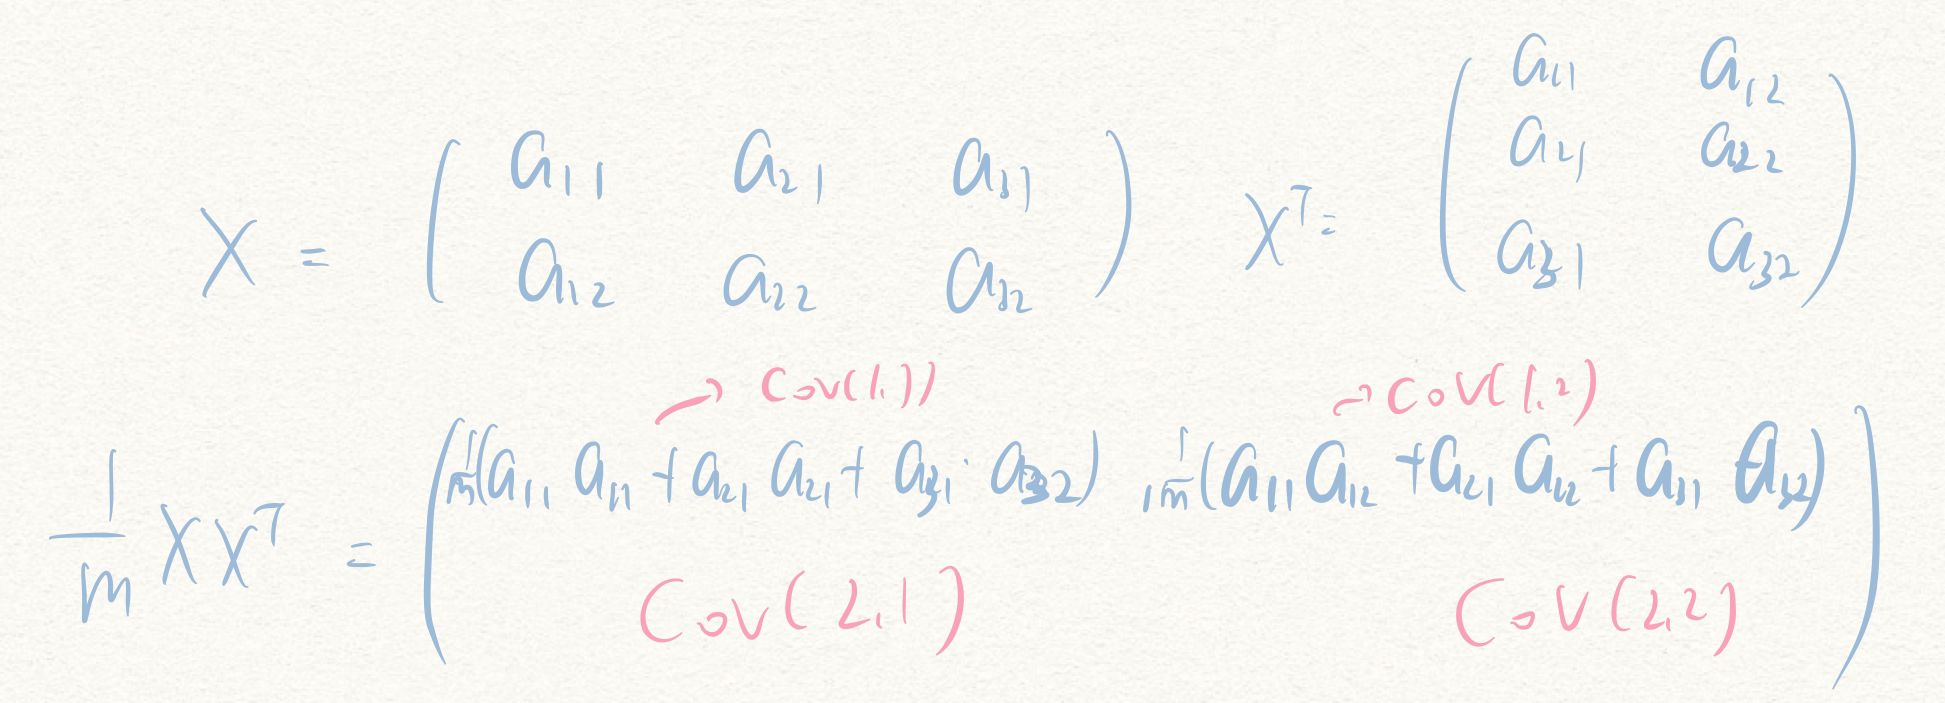 X = ( a₁₁ a₂₁ a₃₁
a₁₂ a₂₂ a₃₂ )
Xᵀ = ( a₁₁ a₁₂
a₂₁ a₂₂
a₃₁ a₃₂ )
→ Cov(1,1) → Cov(1,2)
1/m XXᵀ = ( 1/m(a₁₁ a₁₁ + a₂₁ a₂₁ + a₃₁ · a₃₂) 1/m(a₁₁ a₁₂ + a₂₁ a₂₂ + a₃₁ a₃₂)
Cov(2,1) Cov(2,2) )